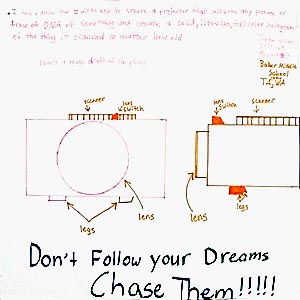 I have a dream that I will be able to create a projector that will scan any picture or
trace of DNA of something and create a solid, lifesize, full color hologram
of the thing it scanned no matter how old
Here's a rough draft of the plans
Baker Middle
School
scanner
lens
switch
lens
legs
lens
switch
scanner
lens
legs
Don't Follow your Dreams
Chase Them!!!!!